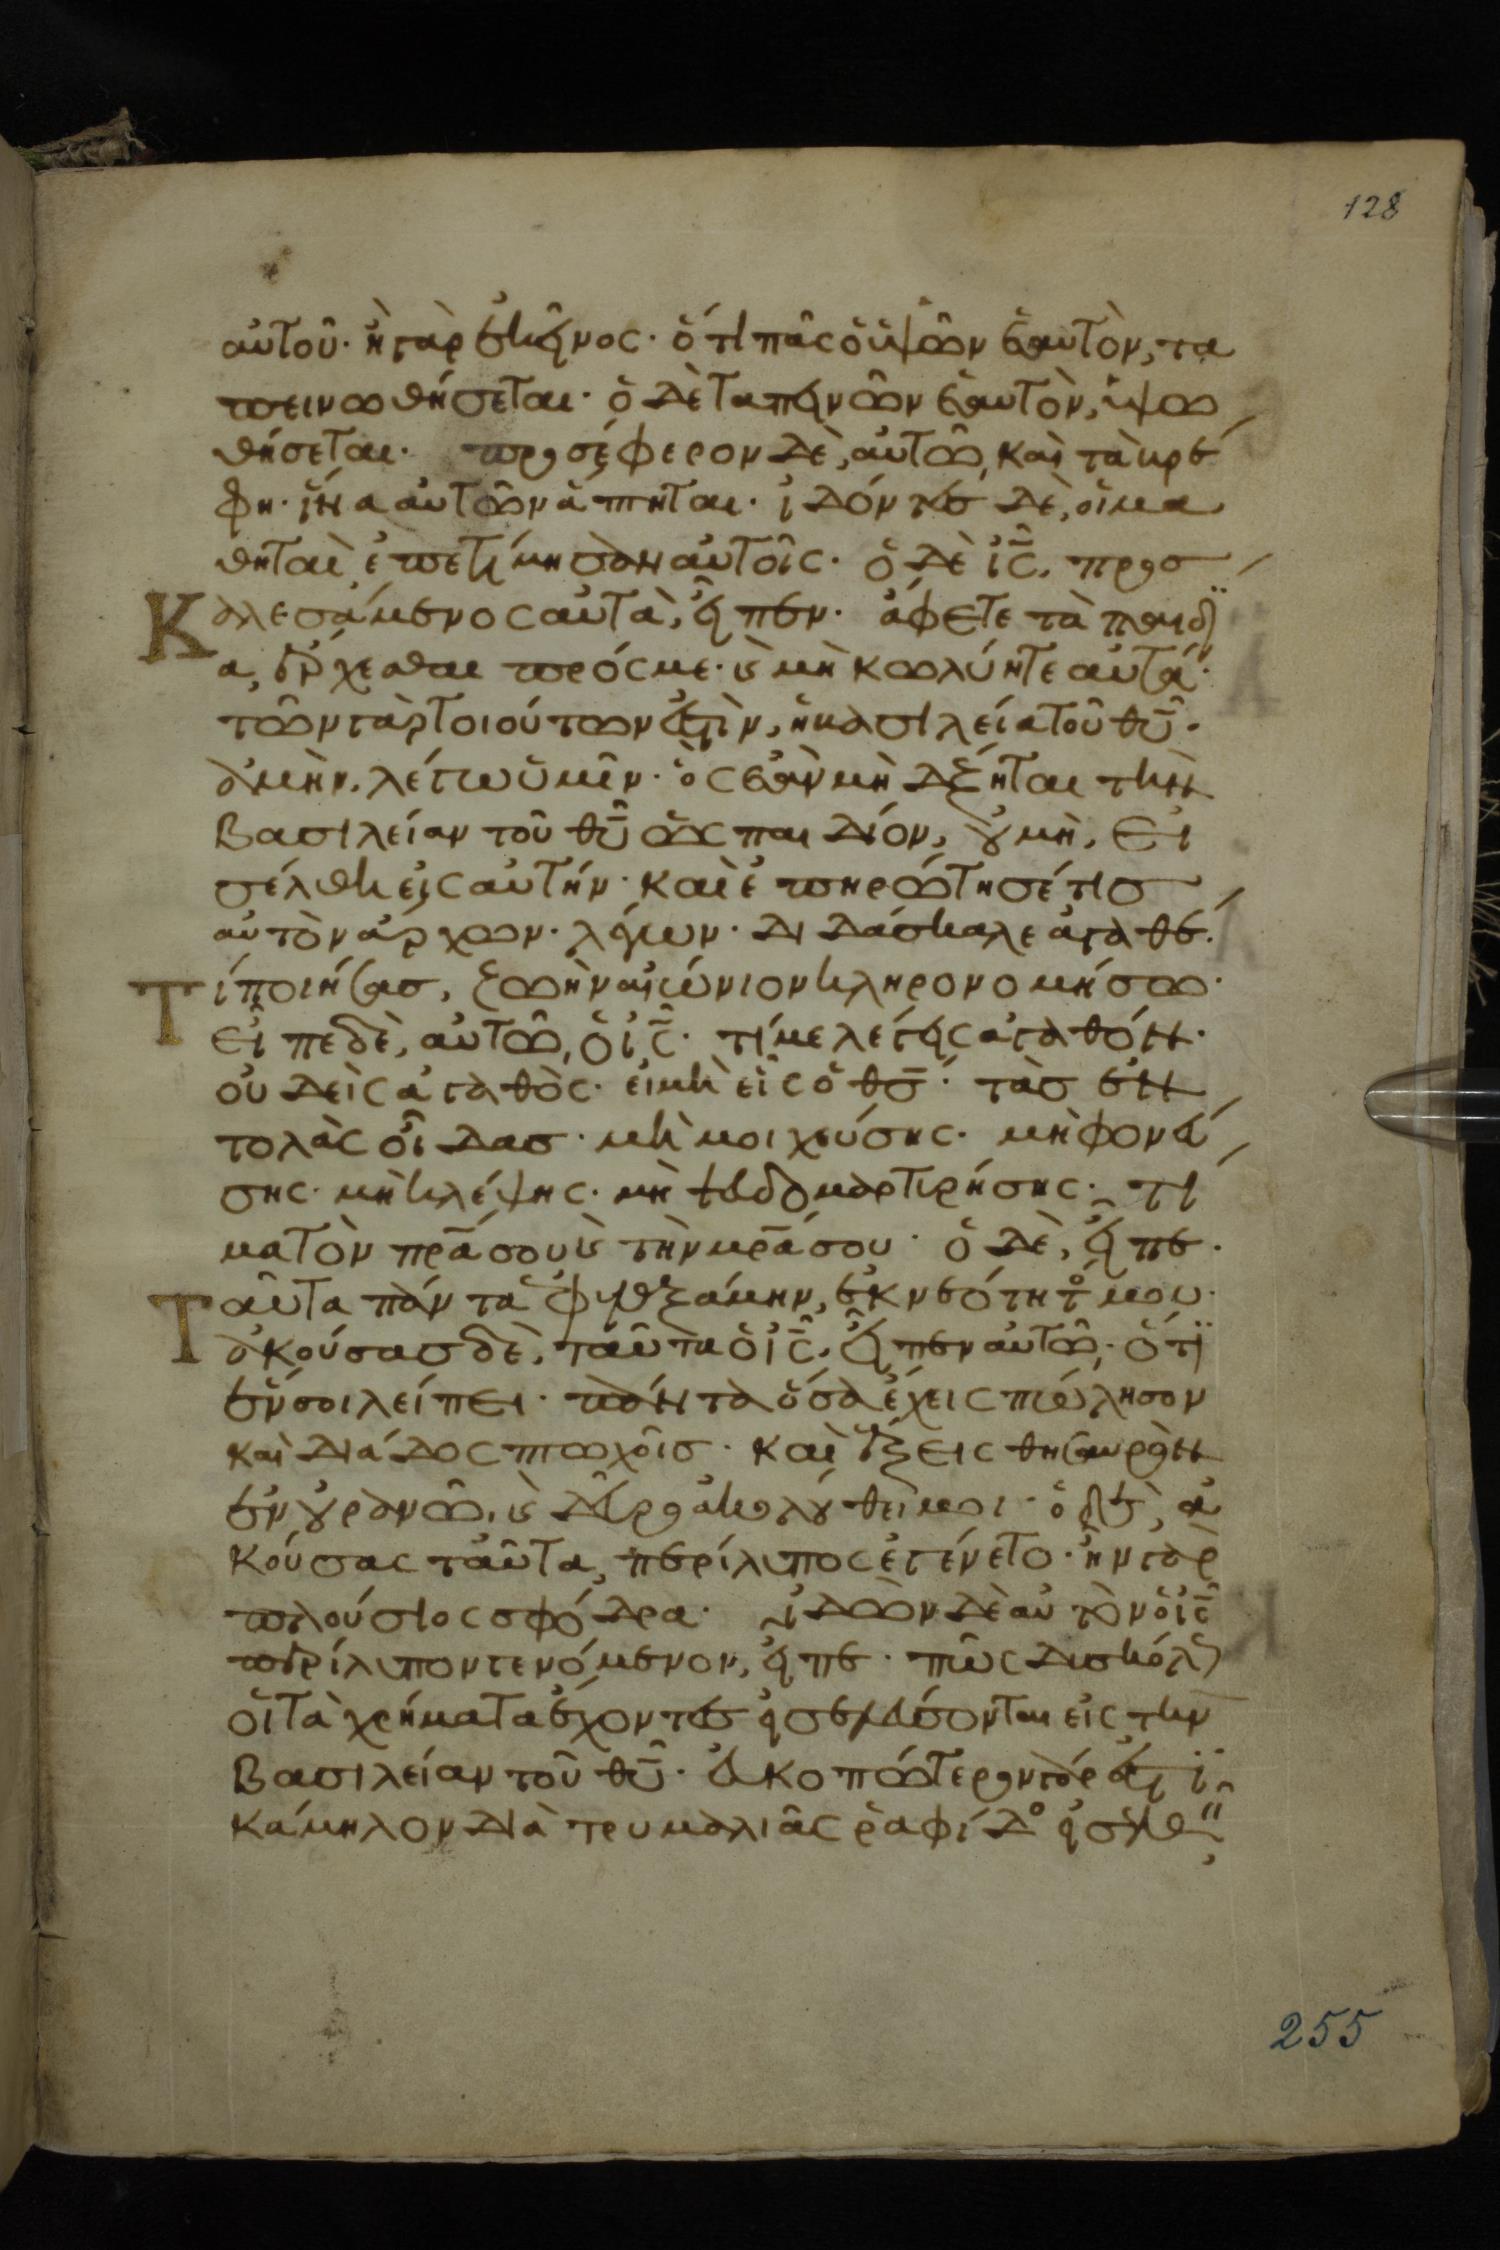 128
αὐτοῦ· ἢ γὰρ ἐκεῖνος· ὅτι πᾶς ὁ ὑψῶν ἑαυτὸν, τα
πεινωθήσεται· ὁ δὲ ταπεινῶν ἑαυτὸν, ὑψω
θήσεται· προσέφερον δὲ, αὐτῶ, καὶ τὰ βρέ
φη· ἵνα αὐτῶν ἅπηται· ἰδόντες δὲ, οἱ μα
θηταὶ, ἐπετίμησαν αὐτοῖς· ὁ δὲ ἰς̅, προσ
Καλεσάμενος αὐτὰ, εἶπεν· ἄφετε τὰ παιδί
α, ἔρχεσθαι πρός με· καὶ μὴ κωλύητε αὐτά·
τῶν γὰρ τοιούτων ἐστὶν, ἡ βασιλεία τοῦ θυ̅·
ἀμὴν, λέγω ὑμῖν· ὃς ἐὰν μὴ δέξηται τὴν
βασιλείαν τοῦ θυ̅ ὡς παιδίον, οὐ μὴ, εἰ
σέλθη εἰς αὐτήν· καὶ ἐπηρώτησέ τισ
αὐτὸν ἄρχων· λέγων· διδάσκαλε ἀγαθέ·
Τί ποιήσασ, ζωὴν αἰώνιον κληρονομήσω·
εἶπε δὲ, αὐτῶ, ὁ ἰς̅· τί με λέγεις ἀγαθόν·
οὐδεὶς ἀγαθὸς· εἰ μὴ εἷς ὁ θσ̅· τὰσ ἐν
τολὰς οἶδασ· μὴ μοιχεύσης· μὴ φονεύ
σης· μὴ κλέψης· μὴ ψευδομαρτυρήσης· τί
μα τὸν πρ̅α σου καὶ τὴν μρ̅α σου· ὁ δὲ, εἶπε·
Ταῦτα πάντα ἐφυλαξάμην, ἐκ νεότητος μου·
ἀκούσασ δὲ, ταῦτα ὁ ἰς̅, εἶπεν αὐτῶ· ὅτι
ἕν σοι λείπει· πάντα ὅσα ἔχεις πώλησον
καὶ διάδος πτωχοῖσ· καὶ ἕξεις θησαυρὸν
ἐν οὐρανῶ, καὶ δεῦρο ἀκολούθει μοι· ὁ δὲ, ἀ
κούσας ταῦτα, περίλυπος ἐγένετο· ἦν γὰρ
πλούσιος σφόδρα· ἰδὼν δὲ αὐτὸν ὁ ἰς̅
περίλυπον γενόμενον, εἶπε· πῶς δυσκόλως
οἱ τὰ χρήματα ἔχοντες εἰσελεύσονται εἰς τὴν
βασιλείαν τοῦ θυ̅· εὐκοπώτερον γάρ ἐστι
κάμηλον διὰ τρυμαλιᾶς ῥαφίδος εἰσελθεῖν,
255